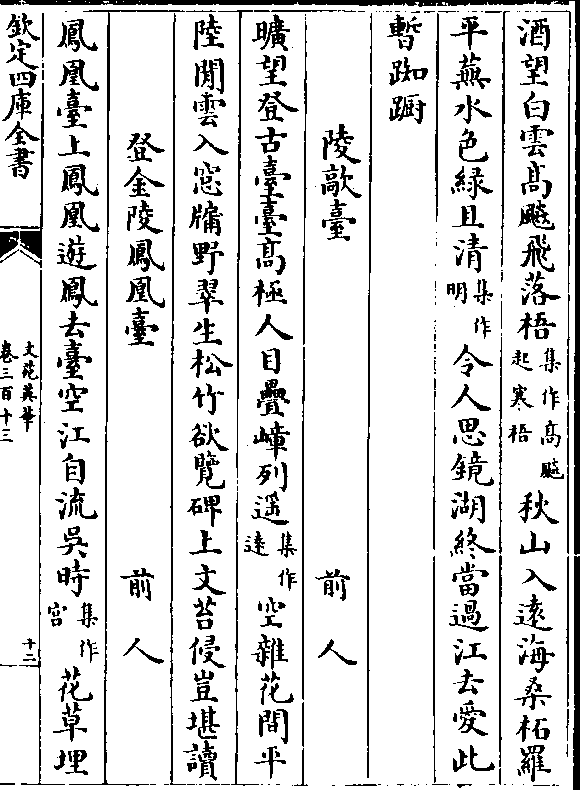 酒望白雲髙飈飛落梧集作髙飈起寒梧秋山入遠海桑柘羅
平蕪水色緑且清集作明令人思鏡湖終當過江去愛此
暫踟蹰
陵歊臺 前人
曠望登古臺臺髙極人目疊嶂列遥集作遠空雜花間平
陸閒雲入窓牖野翠生松竹欲覽碑上文苔侵豈堪讀
登金陵鳳凰臺 前人
鳳凰臺上鳳凰遊鳳去臺空江自流吳時集作宫花草埋
欽定四庫全書
文苑英華
卷三百十三
十二